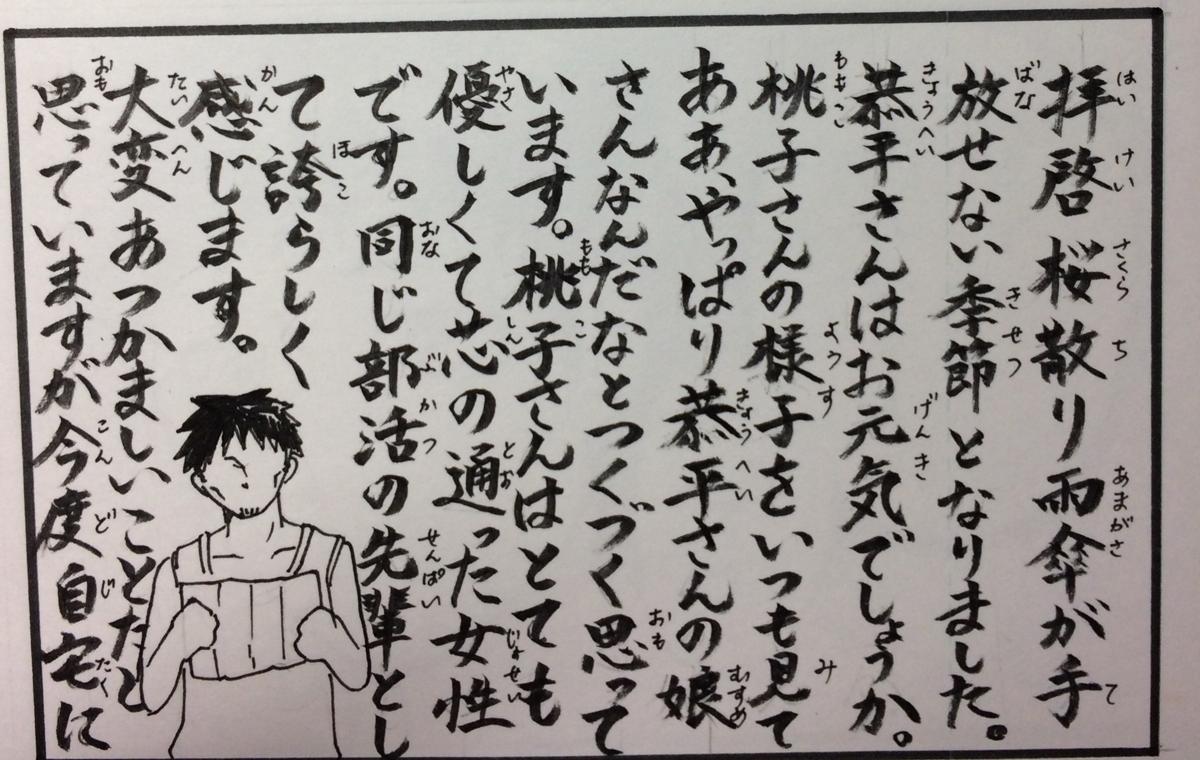 拝啓 桜散り雨傘が手
放せない季節となりました。
恭平さんはお元気でしょうか。
桃子さんの様子をいつも見て
ああ、やっぱり恭平さんの娘
さんなんだなとつくづく思って
います。桃子さんはとても
優しくて芯の通った女性
です。同じ部活の先輩とし
て誇らしく
感じます。
大変あつかましいことだと
思っていますが今度自宅に